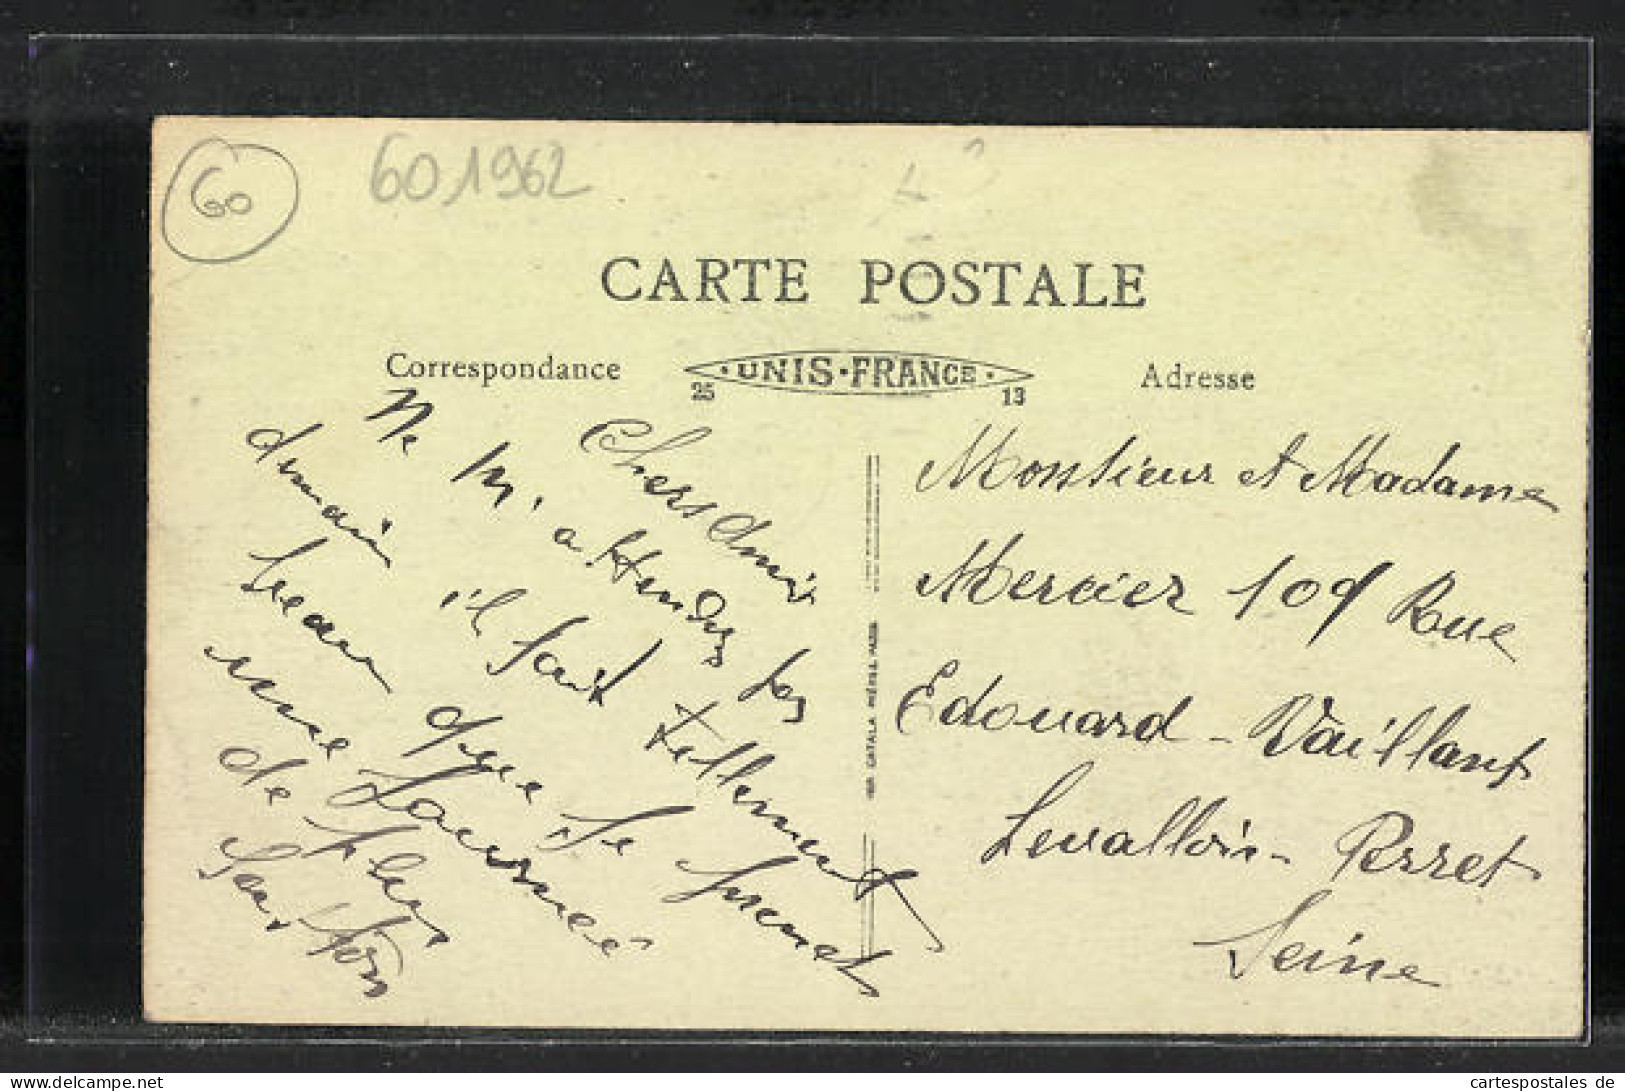 60
601962
CARTE POSTALE
Correspondance
UNIS-FRANCE
25
13
Adresse
Chers Amis
Ne m'attendez pas
demain il fait tellement
beau que je prends
une Journée
de plus
Gaston
Monsieur et Madame
Mercier 109 Rue
Edouard-Vaillant
Levallois-Perret
Seine
IMP. CATALA FRÈRES, PARIS
cartespostales de